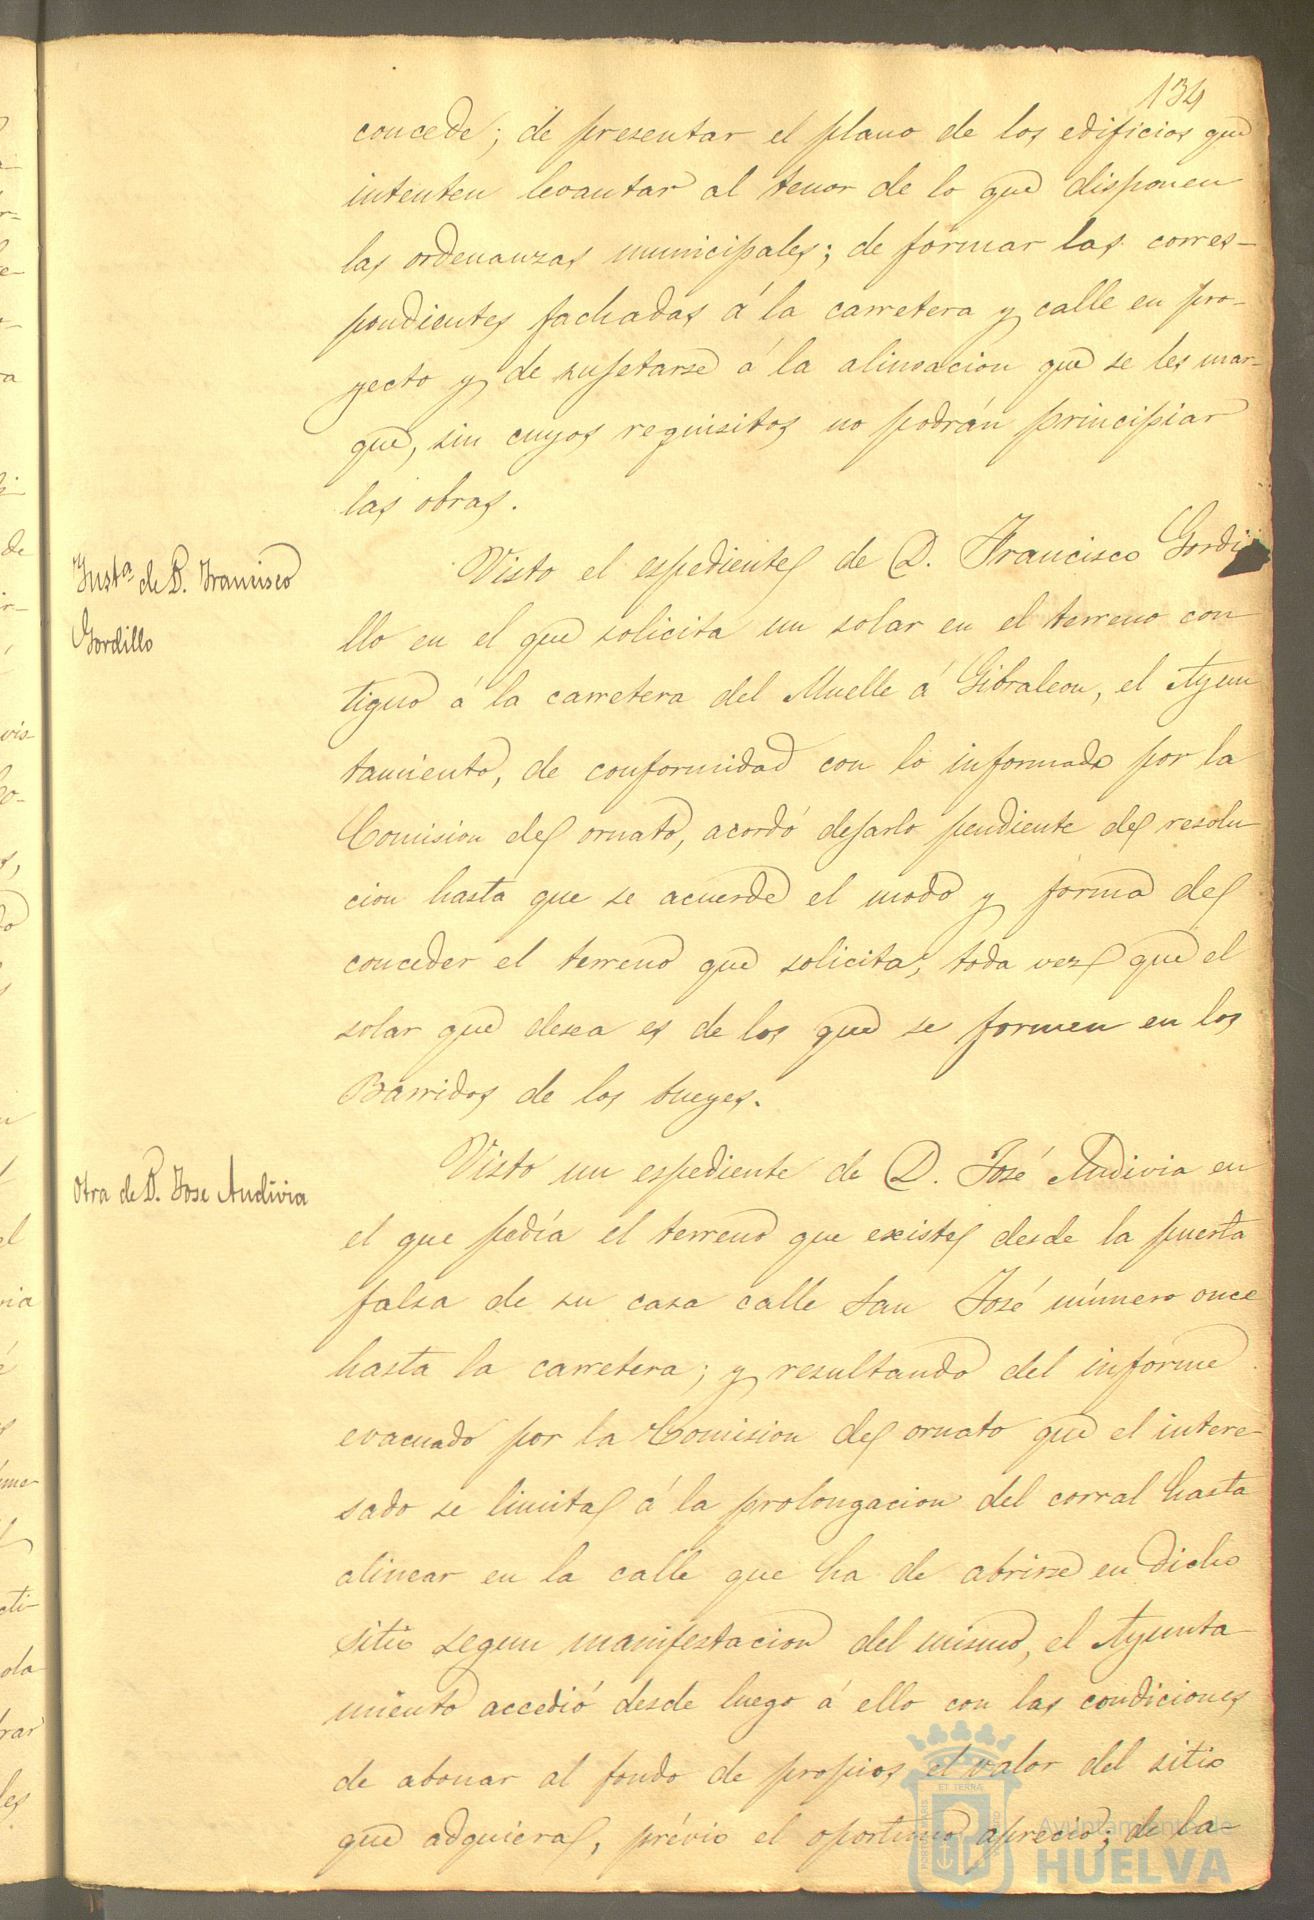 134
concede; de presentar el plano de los edificios que
intenten levantar al tenor de lo que disponen
las ordenanzas municipales; de formar las corres-
pondientes fachadas á la carretera y calle en pro-
yecto y de sujetarse á la alineacion que se les mar-
que, sin cuyos requisitos no podrán principiar
las obras.
Insta de D. Francisco
Gordillo
Visto el espediente de D. Francisco Gordi
llo en el que solicita un solar en el terreno con
tiguo á la carretera del Muelle á Gibraleon, el Ayun
tamiento, de conformidad con lo informado por la
Comision de ornato, acordó dejarlo pendiente de resolu
cion hasta que se acuerde el modo y forma de
conceder el terreno que solicita, toda vez que el
solar que desea es de los que se formen en los
Barridos de los bueyes.
Otra de D. Jose Andivia
Visto un espediente de D. José Andivia en
el que pedía el terreno que existe desde la puerta
falsa de su casa calle San José número once
hasta la carretera; y resultando del informe
evacuado por la Comision de ornato que el intere-
sado se limita á la prolongacion del corral hasta
alinear en la calle que ha de abrirse en dicho
sitio segun manifestacion del mismo, el Ayunta
miento accedió desde luego á ello con las condiciones
de abonar al fondo de propios el valor del sitio
que adquiera, prévio el oportuno aprecio; de la
Ayuntamiento de
HUELVA